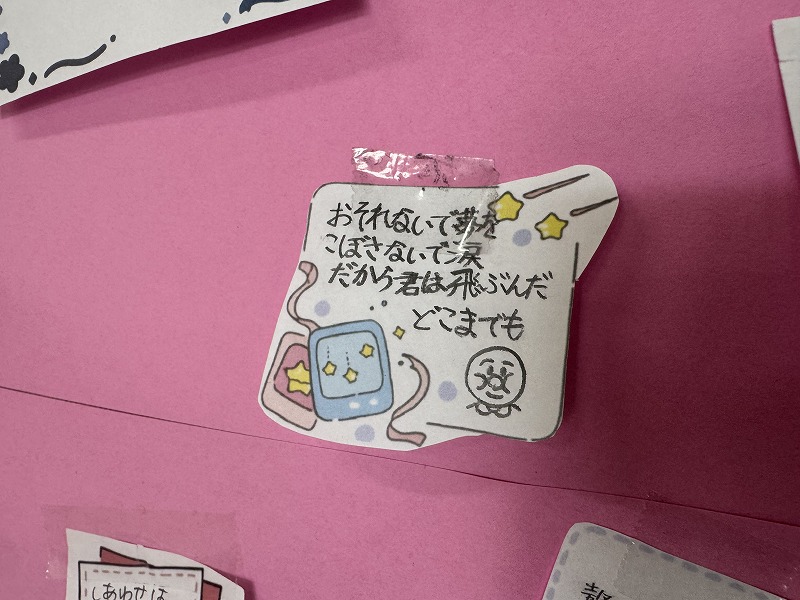 おそれないで夢を
こぼさないで涙
だから君は飛ぶんだ
どこまでも
しあわせは